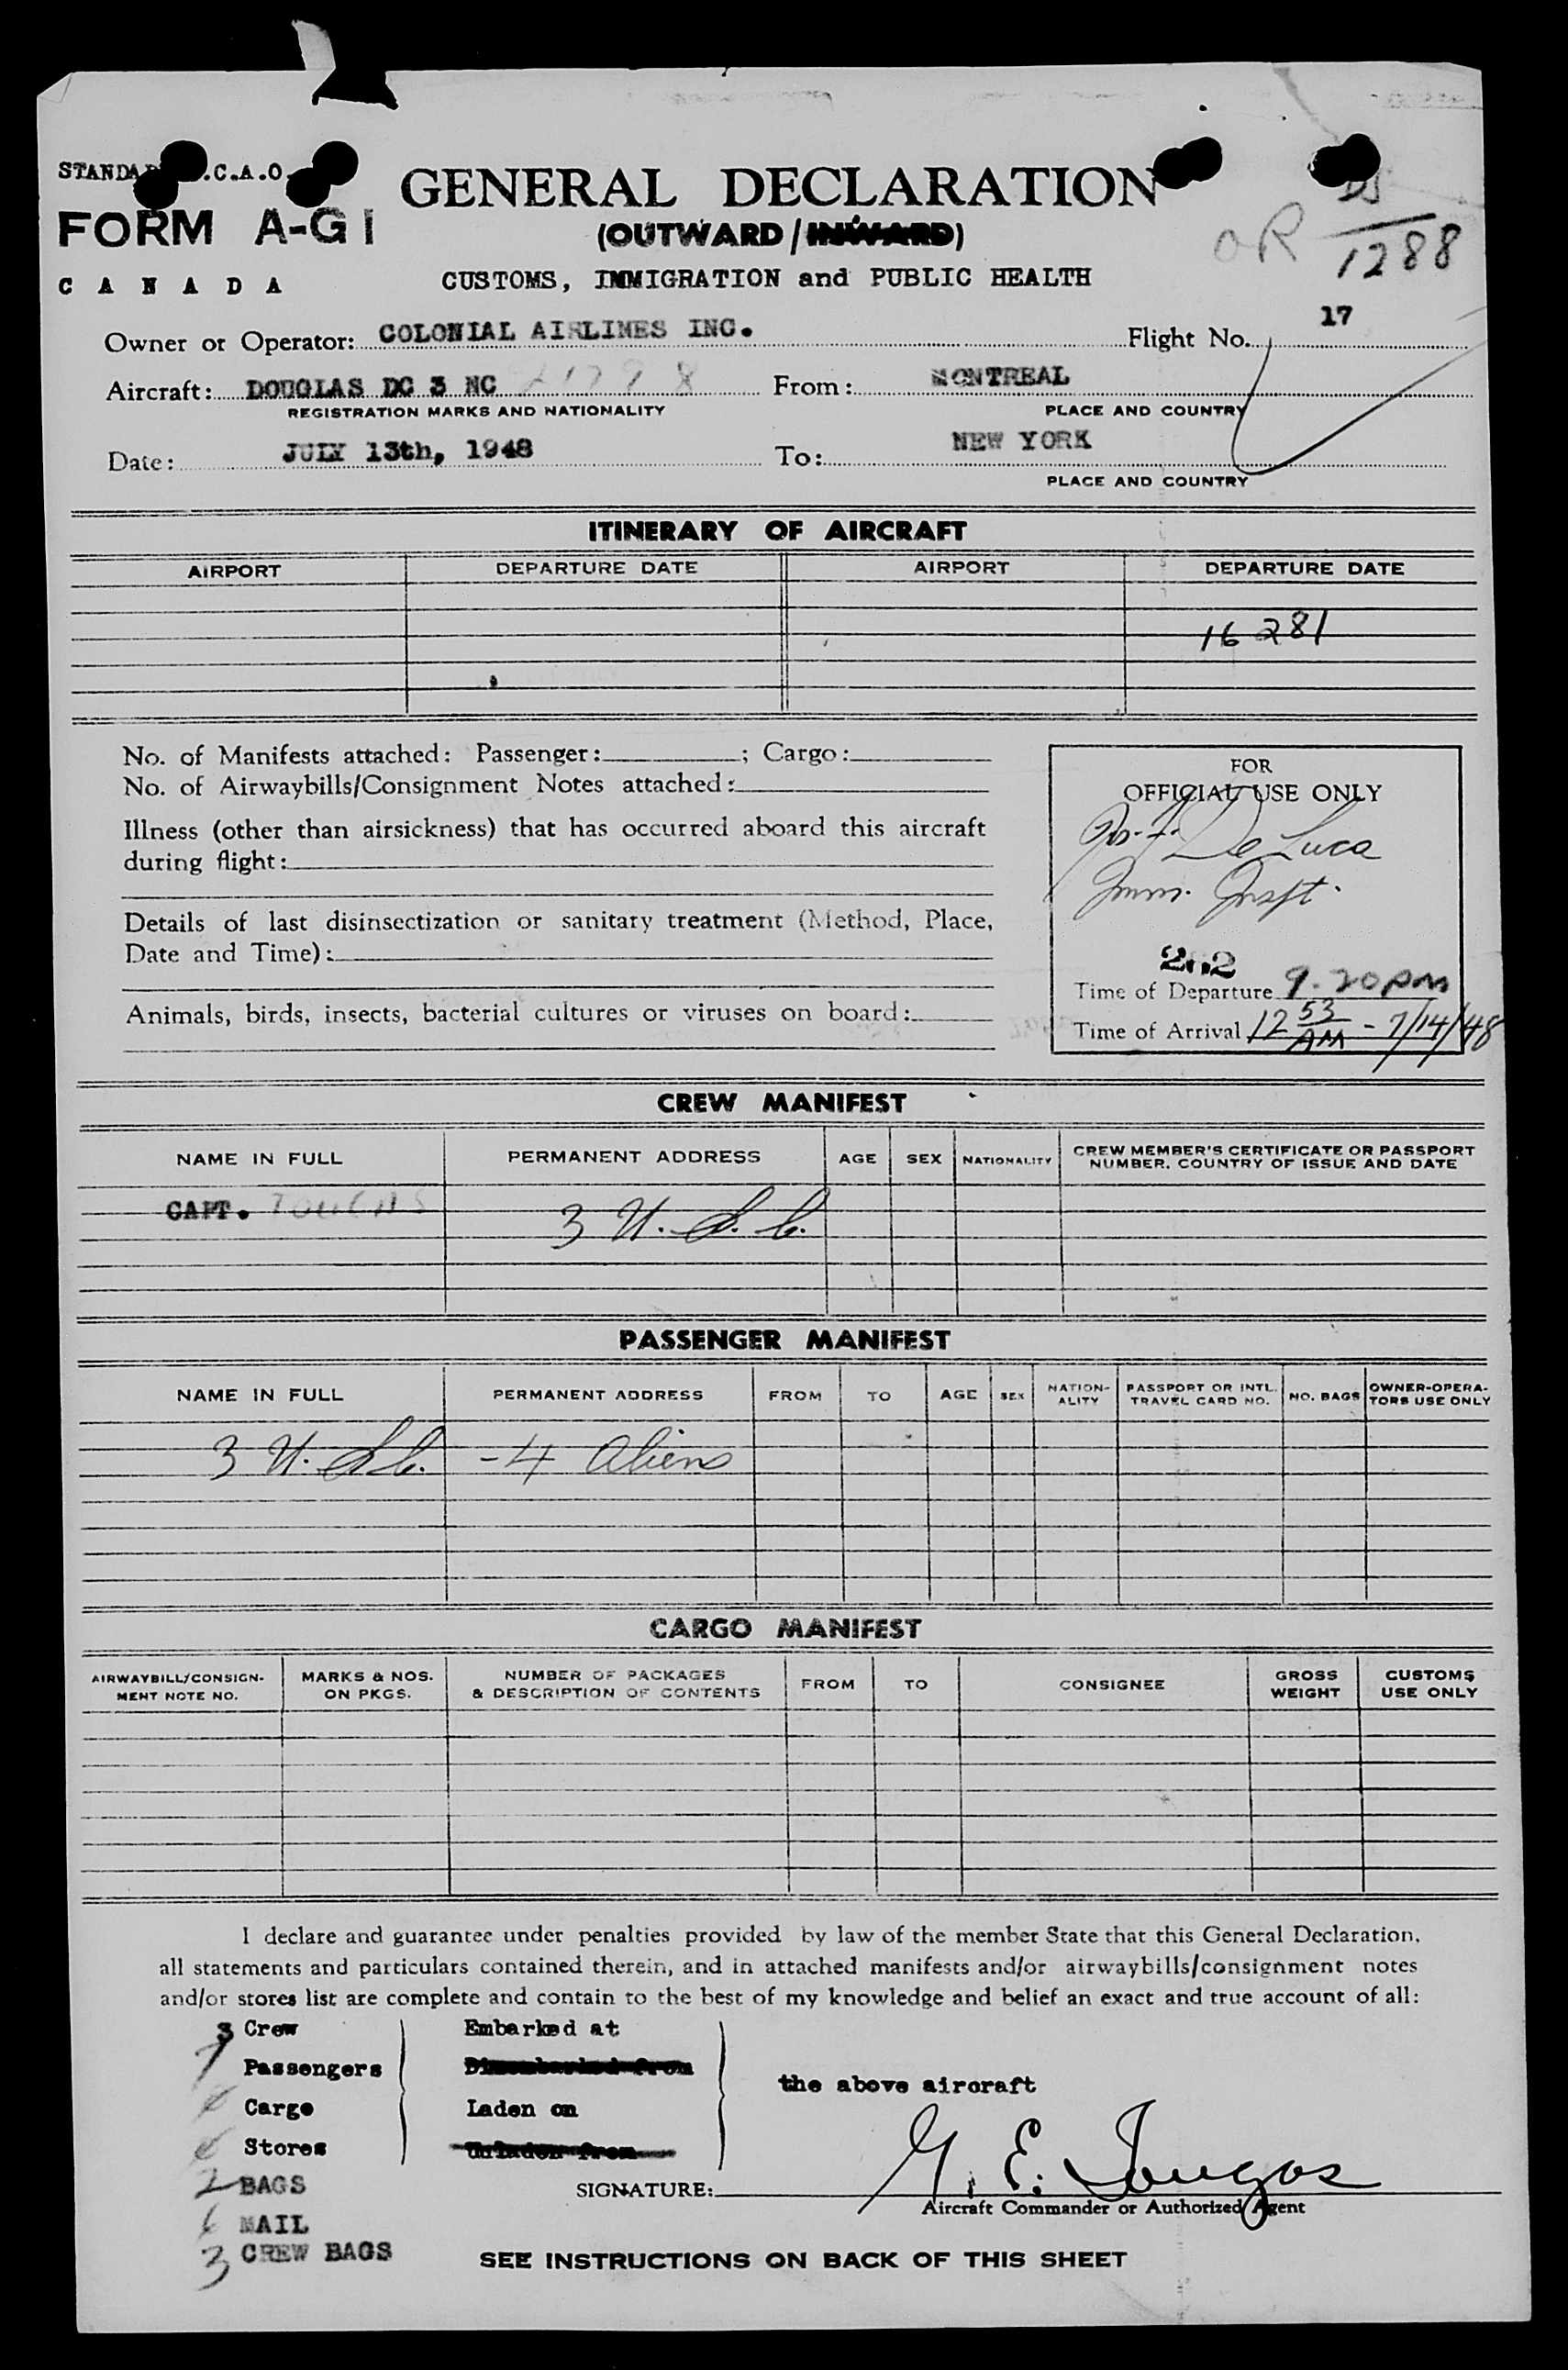 STANDARD I.C.A.O.
FORM A-G 1
CANADA
GENERAL DECLARATION
(OUTWARD/INWARD)
CUSTOMS, IMMIGRATION and PUBLIC HEALTH
OR
1288
Owner or Operator: COLONIAL AIRLINES INC. Flight No. 17
Aircraft: DOUGLAS DC 3 NC From: MONTREAL
REGISTRATION MARKS AND NATIONALITY PLACE AND COUNTRY
Date: JULY 13th, 1948 To: NEW YORK
PLACE AND COUNTRY
ITINERARY OF AIRCRAFT
AIRPORT DEPARTURE DATE AIRPORT DEPARTURE DATE
16 281
No. of Manifests attached: Passenger: ; Cargo:
No. of Airwaybills/Consignment Notes attached:
Illness (other than airsickness) that has occurred aboard this aircraft
during flight:
Details of last disinsectization or sanitary treatment (Method, Place,
Date and Time):
Animals, birds, insects, bacterial cultures or viruses on board:
FOR
OFFICIAL USE ONLY
De Luca
Imm. Inspt.
Time of Departure 9.20 pm
Time of Arrival 12 53 AM - 7/14/48
CREW MANIFEST
NAME IN FULL PERMANENT ADDRESS AGE SEX NATIONALITY CREW MEMBER'S CERTIFICATE OR PASSPORT
NUMBER, COUNTRY OF ISSUE AND DATE
CAPT.
3 U. S. C.
PASSENGER MANIFEST
NAME IN FULL PERMANENT ADDRESS FROM TO AGE SEX NATION-
ALITY PASSPORT OR INTL.
TRAVEL CARD NO. NO. BAGS OWNER-OPERA-
TORS USE ONLY
3 U. S. C. - 4 Aliens
CARGO MANIFEST
AIRWAYBILL/CONSIGN-
MENT NOTE NO. MARKS & NOS.
ON PKGS. NUMBER OF PACKAGES
& DESCRIPTION OF CONTENTS FROM TO CONSIGNEE GROSS
WEIGHT CUSTOMS
USE ONLY
I declare and guarantee under penalties provided by law of the member State that this General Declaration,
all statements and particulars contained therein, and in attached manifests and/or airwaybills/consignment notes
and/or stores list are complete and contain to the best of my knowledge and belief an exact and true account of all:
3 Crew Embarked at
7 Passengers Disembarked from
the above aircraft
Cargo Laden on
Stores Unladen from
2 BAGS
SIGNATURE: G. E. Tougas
Aircraft Commander or Authorized Agent
MAIL
3 CREW BAGS
SEE INSTRUCTIONS ON BACK OF THIS SHEET